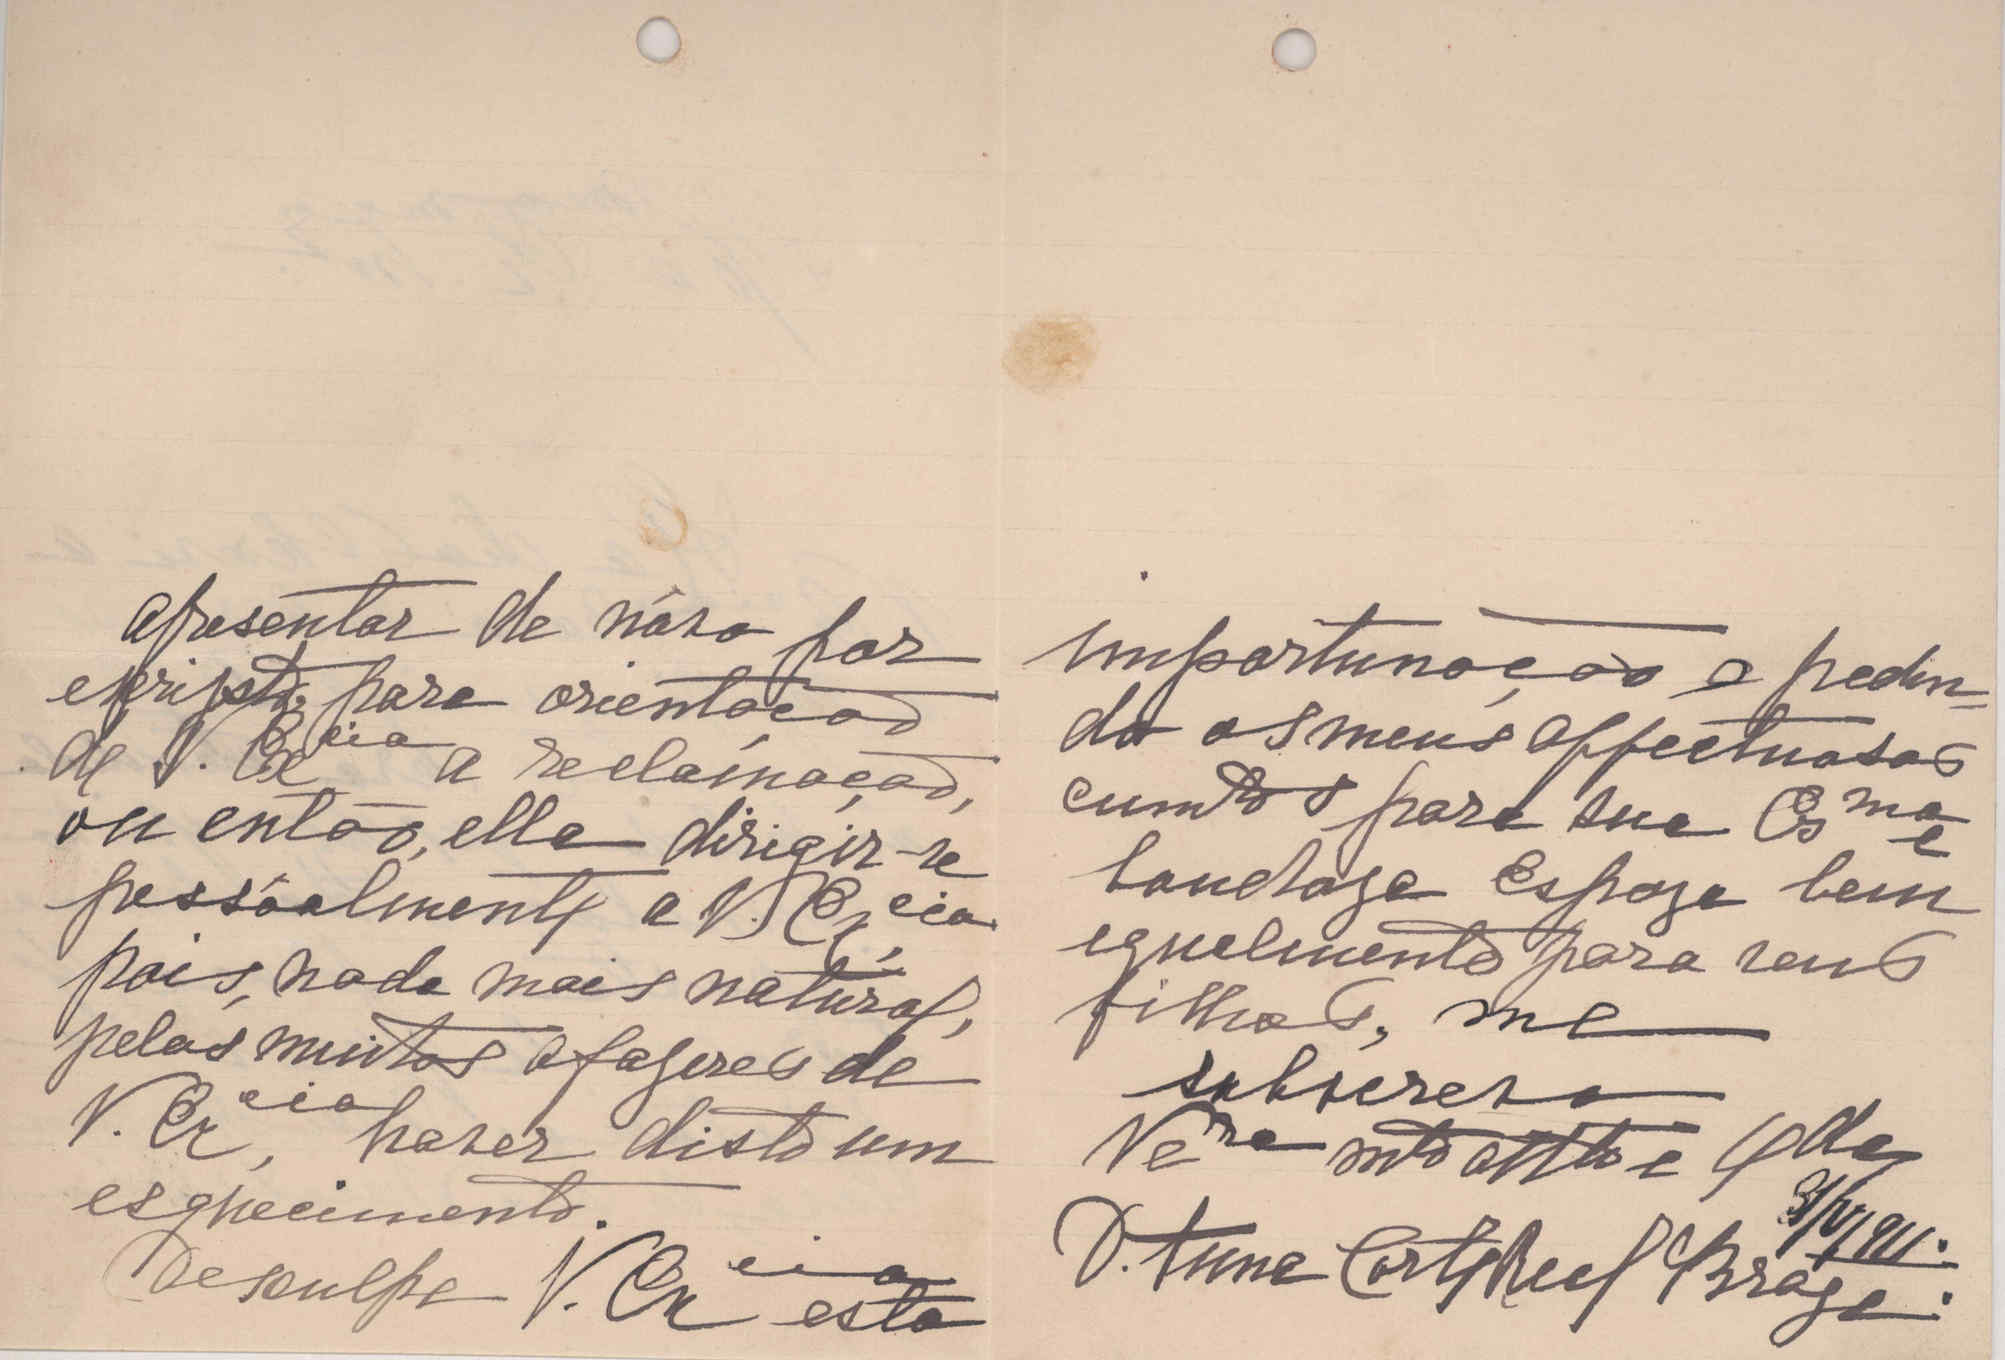 apresentar de nôvo por
escripto, para orientação
de V. Ex.cia a reclamação,
ou então, ella dirigir-se
pessôalmente a V. Ex.cia,
pois, nada mais natural,
pelos muitos afazeres de
V. Ex.cia, haver disto um
esquecimento.
Desculpe V. Ex.cia esta
importunação e pedin=
do os meus affectuosos
cumtos para sua Exma e
bondoza Espoza bem
egualmente para seus
filhos, me
subscrevo
Vera mto atta e
D. Côrte Real Braga.